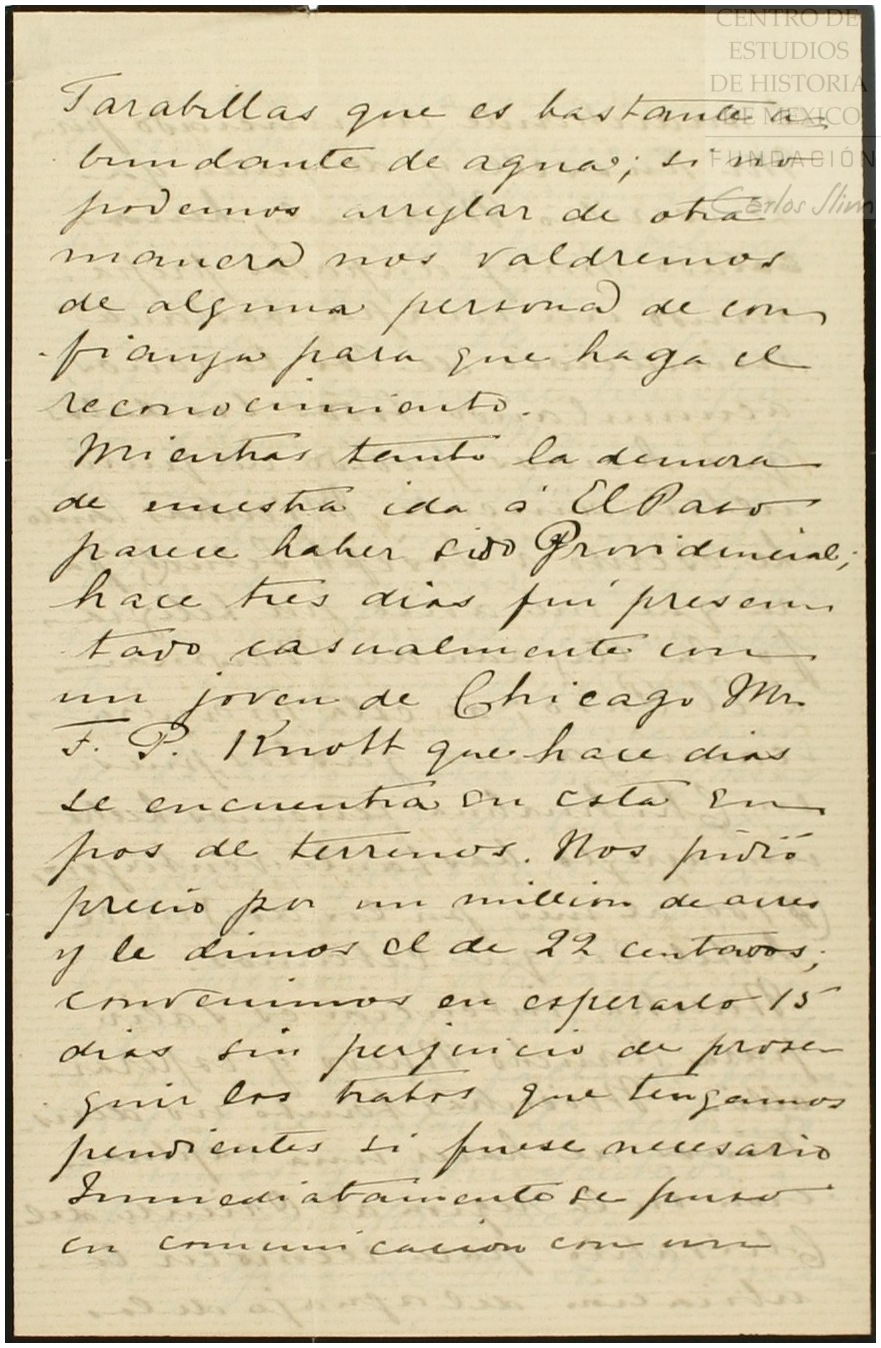 CENTRO DE
ESTUDIOS
DE HISTORIA
DE MÉXICO
FUNDACIÓN
Carlos Slim
Tarabillas que es bastante a-
bundante de agua; si no
podemos arreglar de otra
manera nos valdremos
de alguna persona de con
fianza para que haga el
reconocimiento.
Mientras tanto la demora
de nuestra ida á El Paso
parece haber sido Providencial;
hace tres dias fuí presen
tado casualmente con
un joven de Chicago Mr.
F. P. Knott que hace dias
se encuentra en esta en
pos de terrenos. Nos pidió
precio por un million de acres
y le dimos el de 22 centavos;
convenimos en esperarlo 15
dias sin perjuicio de prose-
guir los tratos que tengamos
pendientes si fuese necesario
Inmediatamente se puso
en comunicacion con un